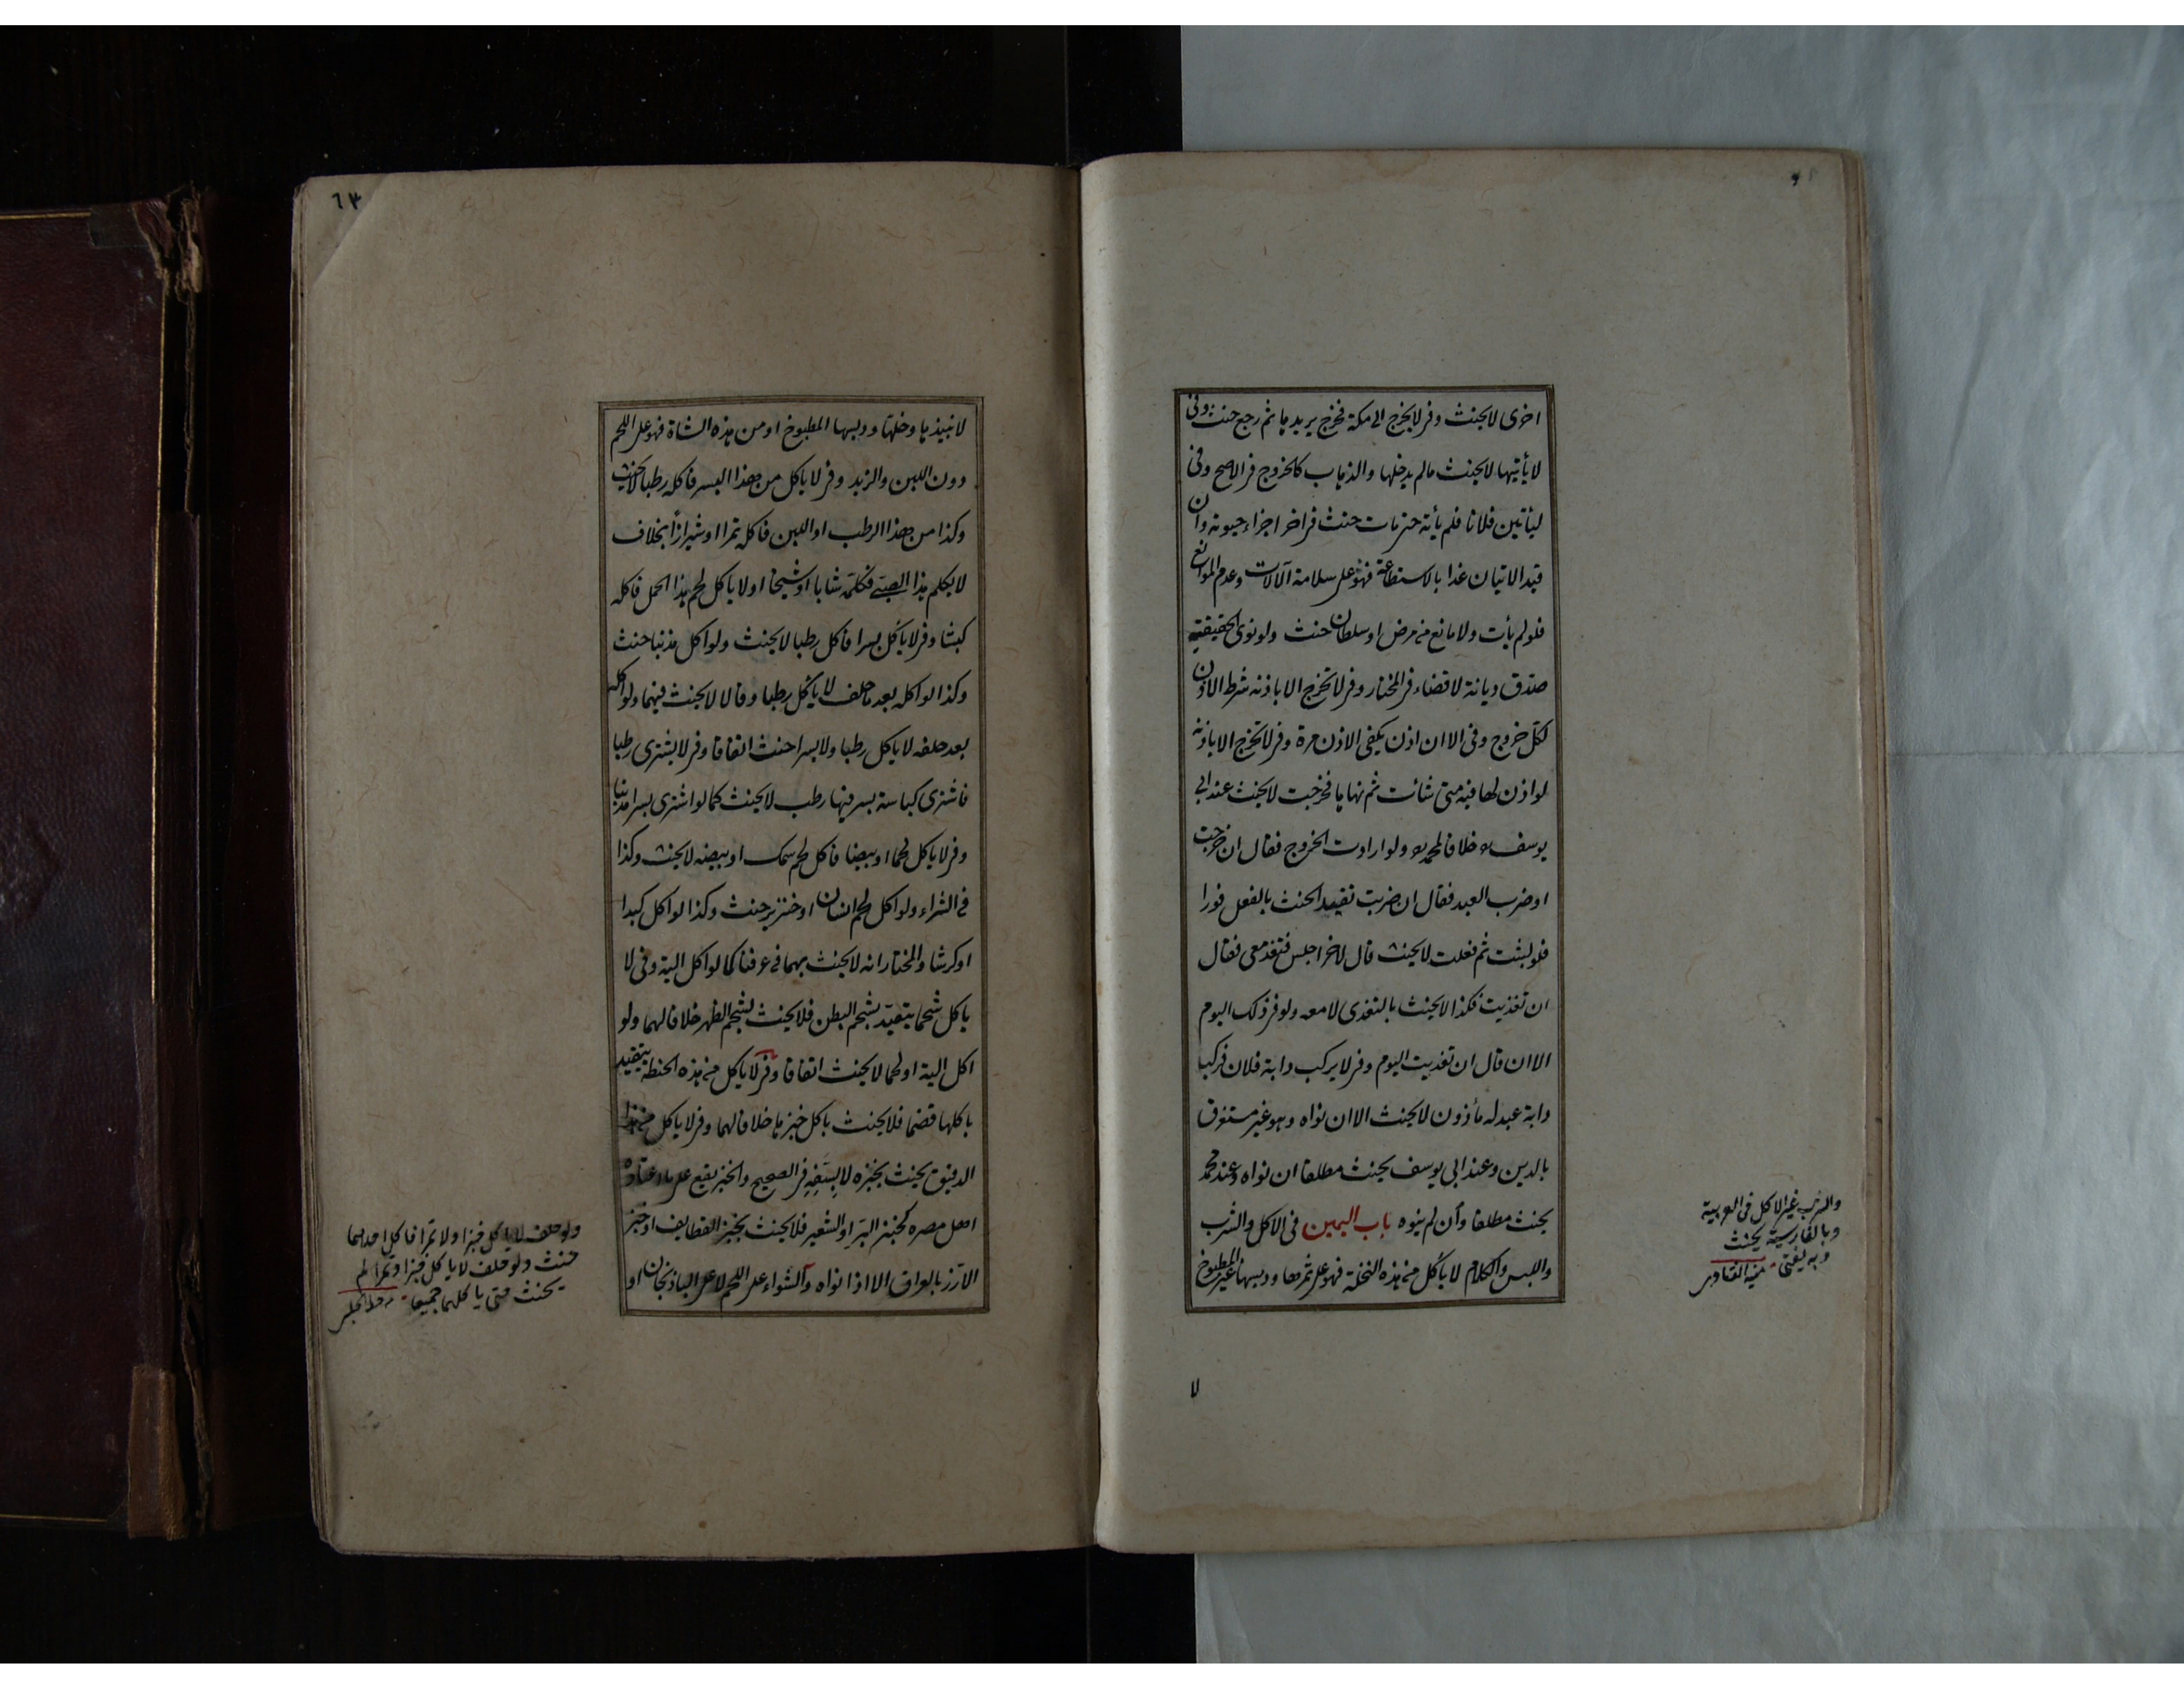 اخرى لا يحنث وفى لا يخرج الى مكة فخرج يريدها ثم رجع حنث وفى
لا يأتيها لا يحنث مالم يدخلها والذهاب كالخروج فى الاصح وفى
ليأتين فلانا فلم يأته حتى مات حنث فى اخر اجزاء حيوته وان
قيد الاتيان غدا بالاستطاعة فهو على سلامة الآلات وعدم الموانع
فلو لم يأت ولا مانع من مرض او سلطان حنث ولو نوى الحقيقية
صدق ديانة لا قضاء فى المختار وفى لا تخرج الا باذنه شرط الاذن
لكل خروج وفى الا ان اذن يكفى الاذن مرة وفى لا تخرج الا باذنه
لو اذن لها فيه متى شائت ثم نهاها فخرجت لا يحنث عند ابى
يوسف خلافا لمحمد ولو ارادت الخروج فقال ان خرجت
او ضرب العبد فقال ان ضربت تقيد الحنث بالفعل فورا
فلو لبثت ثم فعلت لا يحنث قال لاخر اجلس فتغد معى فقال
ان تغذيت فكذا لا يحنث بالتغدى لا معه ولو فى ذلك اليوم
الا ان قال ان تغديت اليوم وفى لا يركب دابة فلان فركب
دابة عبد له مأذون لا يحنث الا ان نواه وهو غير مستغرق
بالدين وعند ابى يوسف يحنث مطلقا ان نواه وعند محمد
يحنث مطلقا وان لم ينوه باب اليمين فى الاكل والشرب
واللبس والكلام لا يأكل من هذه النخلة فهو على ثمرها ودبسها غير المطبوخ
والشرب غير الاكل فى العربية
وبالفارسية يحنث
وبه يفتى منية
لا
٦٣
لا نبيذها وخلها ودبسها المطبوخ او من هذه الشاة فهو على اللحم
دون اللبن والزبد وفى لا ياكل من هذا البسر فاكله رطبا لا يحنث
وكذا من هذا الرطب او اللبن فاكله تمرا او شيرازا بخلاف
لا يكلم هذا الصبى فكلمه شابا او شيخا او لا ياكل لحم هذا الحمل فاكله
كبشا وفى لا يأكل بسرا فاكل رطبا لا يحنث ولو اكل مذنبا حنث
وكذا لو اكله بعد ما حلف لا يأكل رطبا وقالا لا يحنث فيهما ولو اكله
بعد حلفه لا ياكل رطبا ولا بسرا حنث اتفاقا وفى لا يشترى رطبا
فاشترى كباسة بسر فيها رطب لا يحنث كما لو اشترى بسرا مذنبا
وفى لا ياكل لحما او بيضا فاكل لحم سمك او بيضه لا يحنث وكذا
فى الشراء ولو اكل لحم انسان او خنزير حنث وكذا لو اكل كبدا
او كرشا والمختار انه لا يحنث بهما فى عرفنا كما لو اكل الية وفى لا
ياكل شحما يتقيد بشحم البطن فلا يحنث بشحم الظهر خلافا لهما ولو
اكل الية او لحما لا يحنث اتفاقا وفى لا ياكل من هذه الحنطة يتقيد
باكلها قضما فلا يحنث باكل خبزها خلافا لهما وفى لا ياكل من هذا
الدقيق يحنث بخبزه لا بسفه فى الصحيح والخبز يقع على ما اعتاده
اهل مصره كخبز البر او الشعير فلا يحنث بخبز القطايف او خبز
الارز بالعراق الا اذا نواه والشواء على اللحم لا على الباذنجان او
ولو حلف لا ياكل خبزا ولا تمرا فاكل احدهما
حنث ولو حلف لا ياكل خبزا وتمرا لم
يحنث حتى ياكلهما جميعا